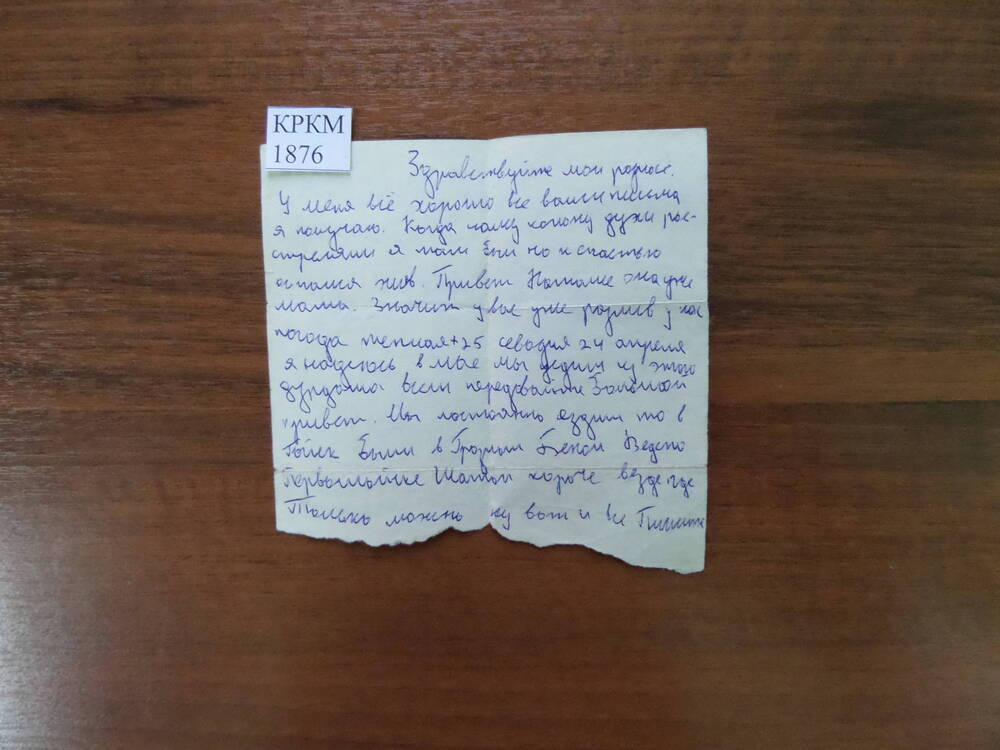 КРКМ
1876
Здравствуйте мои родные.
У меня всё хорошо все ваши письма
я получаю. Когда нашу колону духи рас-
стреляли я там был но к счастью
остался жив. Привет Наташе она уже
мама. Значит у вас уже розлив у нас
погода теплая +25 севодня 24 апреля
я надеюсь в мае мы уедим из этого
дурдома всем передовайте Большой
привет. Мы постоянно ездим то в
были в Грозным Беной Ведено
Первомайске Шатой короче везде где
Только можно ну вот и все Пишите